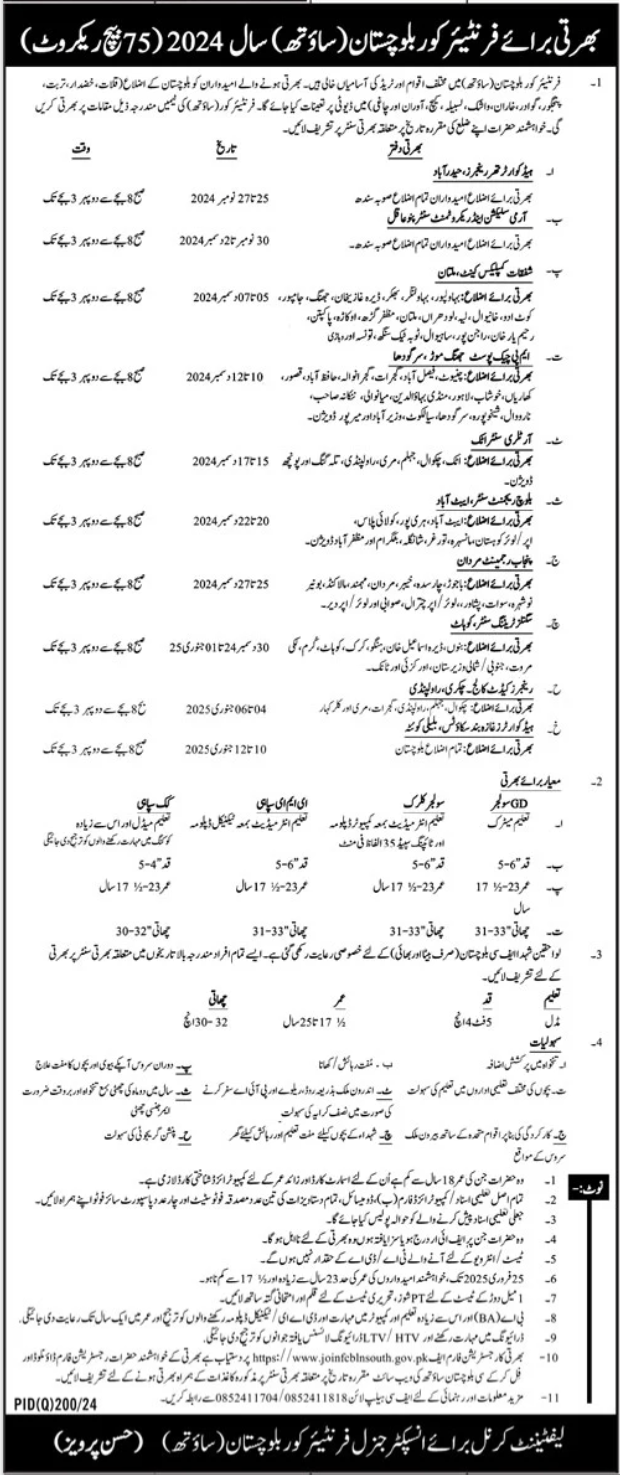 بھرتی برائے فرنٹیئر کور بلوچستان (ساؤتھ) سال 2024 (75 بیچ ریکروٹ)
1۔ فرنٹیئر کور بلوچستان (ساؤتھ) میں مختلف اقوام اور ٹریڈ کی آسامیاں خالی ہیں۔ بھرتی ہونے والے امیدواران کو بلوچستان کے اضلاع (قلات، خضدار، تربت،
پنجگور، گوادر، خاران، واشک، لسبیلہ، کیچ، آوران اور چاغی) میں ڈیوٹی پر تعینات کیا جائے گا۔ فرنٹیئر کور (ساؤتھ) کی ٹیمیں مندرجہ ذیل مقامات پر بھرتی کریں
گی۔ خواہشمند حضرات اپنے ضلع کی مقررہ تاریخ پر متعلقہ بھرتی سنٹر پر تشریف لائیں۔
بھرتی دفتر تاریخ وقت
ا۔ ہیڈ کوارٹر تھر رینجرز، حیدر آباد
بھرتی برائے اضلاع امیدواران تمام اضلاع صوبہ سندھ 25 تا 27 نومبر 2024 صبح 8 بجے سے دوپہر 3 بجے تک
ب۔ آرمی سلیکشن اینڈ ریکروٹمنٹ سنٹر پنو عاقل
بھرتی برائے اضلاع امیدواران تمام اضلاع صوبہ سندھ۔ 30 نومبر تا 2 دسمبر 2024 صبح 8 بجے سے دوپہر 3 بجے تک
پ۔ شفقات کمپلیکس کینٹ، ملتان
بھرتی برائے اضلاع: بہاولپور، بہاولنگر، بھکر، ڈیرہ غازیخان، جھنگ، جامپور، 05 تا 07 دسمبر 2024 صبح 8 بجے سے دوپہر 3 بجے تک
کوٹ ادو، خانیوال، لیہ، لودھراں، ملتان، مظفر گڑھ، اوکاڑہ، پاکپتن،
رحیم یار خان، راجن پور، ساہیوال، ٹوبہ ٹیک سنگھ، تونسہ اور وہاڑی
ت۔ ایم پی چیک پوسٹ جھنگ موڑ، سرگودھا
بھرتی برائے اضلاع: چنیوٹ، فیصل آباد، گجرات، گجرانوالہ، حافظ آباد، قصور، 10 تا 12 دسمبر 2024 صبح 8 بجے سے دوپہر 3 بجے تک
کھاریاں، خوشاب، لاہور، منڈی بہاؤالدین، میانوالی، ننکانہ صاحب،
نارووال، شیخوپورہ، سرگودھا، سیالکوٹ، وزیر آباد اور میر پور ڈویژن۔
ٹ۔ آرٹلری سنٹر اٹک
بھرتی برائے اضلاع: اٹک، چکوال، جہلم، مری، راولپنڈی، تلہ گنگ اور پونچھ 15 تا 17 دسمبر 2024 صبح 8 بجے سے دوپہر 3 بجے تک
ڈویژن۔
ث۔ بلوچ رجمنٹ سنٹر، ایبٹ آباد
بھرتی برائے اضلاع: ایبٹ آباد، ہری پور، کولائی پلاس، 20 تا 22 دسمبر 2024 صبح 8 بجے سے دوپہر 3 بجے تک
اپر/لوئر کوہستان، مانسہرہ، تورغر، شانگلہ، بٹگرام اور مظفر آباد ڈویژن۔
ج۔ پنجاب رجمنٹ مردان
بھرتی برائے اضلاع: باجوڑ، چارسدہ، خیبر، مردان، مہمند، مالاکنڈ، بونیر 25 تا 27 دسمبر 2024 صبح 8 بجے سے دوپہر 3 بجے تک
نوشہرہ، سوات، پشاور، لوئر/اپر چترال، صوابی اور لوئر/اپر دیر۔
چ۔ سگنلز ٹریننگ سنٹر، کوہاٹ
بھرتی برائے اضلاع: بنوں، ڈیرہ اسماعیل خان، ہنگو، کرک، کوہاٹ، کُرم، لکی 30 دسمبر 24 تا 01 جنوری 25 صبح 8 بجے سے دوپہر 3 بجے تک
مروت، جنوبی/شمالی وزیرستان، اورکزئی اور ٹانک۔
ح۔ رینجرز کیڈٹ کالج، چکری، راولپنڈی
بھرتی برائے اضلاع: چکوال، جہلم، راولپنڈی، گجرات، مری اور کلر کہار 04 تا 06 جنوری 2025 صبح 8 بجے سے دوپہر 3 بجے تک
خ۔ ہیڈ کوارٹرز غازہ بند سکاؤٹس، بلیلی کوئٹہ
بھرتی برائے اضلاع: تمام اضلاع بلوچستان 10 تا 12 جنوری 2025 صبح 8 بجے سے دوپہر 3 بجے تک
2۔ معیار برائے بھرتی
GD سولجر سولجر کلرک ای ایم ای سپاہی کک سپاہی
ا۔ تعلیم میٹرک تعلیم انٹرمیڈیٹ بمعہ کمپیوٹر ڈپلومہ تعلیم انٹرمیڈیٹ بمعہ ٹیکنیکل ڈپلومہ تعلیم مڈیل اور اس سے زیادہ
اور ٹائپنگ سپیڈ 35 الفاظ فی منٹ کوکنگ میں مہارت رکھنے والوں کو ترجیح دی جائیگی
ب۔ قد "6-5 قد "6-5 قد "6-5 قد "4-5
پ۔ عمر 23-½ 17 عمر 23-½ 17 سال عمر 23-½ 17 سال عمر 23-½ 17 سال
سال
ت۔ چھاتی "33-31 چھاتی "33-31 چھاتی "33-31 چھاتی "32-30
3۔ لواحقین شہدا ایف سی بلوچستان (صرف بیٹا اور بھائی) کے لئے خصوصی رعایت رکھی گئی ہے۔ ایسے تمام افراد مندرجہ بالا تاریخوں میں متعلقہ بھرتی سنٹر پر بھرتی
کے لئے تشریف لائیں۔
تعلیم قد عمر چھاتی
مڈل 5 فٹ 4 انچ ½ 17 تا 25 سال 32 -30 انچ
4۔ سہولیات
ا۔ تنخواہ میں پرکشش اضافہ ب۔ مفت رہائش/کھانا پ۔ دوران سروس آپکے بیوی اور بچوں کا مفت علاج
ت۔ بچوں کی مختلف تعلیمی اداروں میں تعلیم کی سہولت ٹ۔ اندرون ملک بذریعہ روڈ، ریلوے اور پی آئی اے سفر کرنے ث۔ سال میں دو ماہ کی چھٹی بمع تنخواہ اور بروقت ضرورت
کی صورت میں نصف کرایہ کی سہولت ایمرجنسی چھٹی
ج۔ کارکردگی کی بنا پر اقوام متحدہ کے ساتھ بیرون ملک چ۔ شہداء کے بچوں کیلئے مفت تعلیم اور رہائش کیلئے گھر ح۔ پنشن گریجوٹی کی سہولت
سروس کے مواقع
نوٹ:-
1۔ وہ حضرات جن کی عمر 18 سال سے کم ہے اُن کے لئے اسمارٹ کارڈ اور زائد عمر کے لئے کمپیوٹرائزڈ شناختی کارڈ لازمی ہے۔
2۔ تمام اصل تعلیمی اسناد/کمپیوٹرائزڈ فارم (ب)، ڈومیسائل، تمام دستاویزات کی تین عدد مصدقہ فوٹوسٹیٹ اور چار عدد پاسپورٹ سائز فوٹو اپنے ہمراہ لائیں۔
3۔ جعلی تعلیمی اسناد پیش کرنے والے کو حوالہ پولیس کیا جائے گا۔
4۔ وہ حضرات جن پر ایف آئی ار درج ہو یا سزا یافتہ ہوں وہ بھرتی کے لئے نااہل ہو گا۔
5۔ ٹیسٹ/انٹرویو کے لئے آنے والے ٹی اے/ڈی اے کے حقدار نہیں ہوں گے۔
6۔ 25 فروری 2025 تک، خواہشمند امیدواروں کی عمر کی حد 23 سال سے زیادہ اور ½ 17 سے کم نا ہو۔
7۔ 1 میل دوڑ کے ٹیسٹ کے لئے PT شوز، تحریری ٹیسٹ کے لئے قلم اور امتحانی گتہ ساتھ لائیں۔
8۔ بی اے (BA) اور اس سے زیادہ تعلیم اور کمپیوٹر میں مہارت اور ڈی اے ای/ٹیکنیکل ڈپلومہ رکھنے والوں کو ترجیح اور عمر میں ایک سال تک رعایت دی جائیگی۔
9۔ ڈرائیونگ میں مہارت رکھنے اور LTV/HTV ڈرائیونگ لائسنس یافتہ جوانوں کو ترجیح دی جائیگی۔
10۔ بھرتی کا رجسٹریشن فارم ایف https://www.joinfcblnsouth.gov.pk پر دستیاب ہے بھرتی کے خواہشمند حضرات رجسٹریشن فارم ڈاؤنلوڈ اور
فل کر کے سی بلوچستان ساؤتھ کی ویب سائٹ مقررہ تاریخ پر متعلقہ بھرتی سنٹر پر مذکورہ کاغذات کے ہمراہ بھرتی ہونے کے لئے تشریف لائیں۔
11۔ مزید معلومات اور رہنمائی کے لئے ایف سی ہیلپ لائن 0852411818/0852411704 سے رابطہ کریں۔
PID(Q)200/24
لیفٹیننٹ کرنل برائے انسپکٹر جنرل فرنٹیئر کور بلوچستان (ساؤتھ) (حسن پرویز)